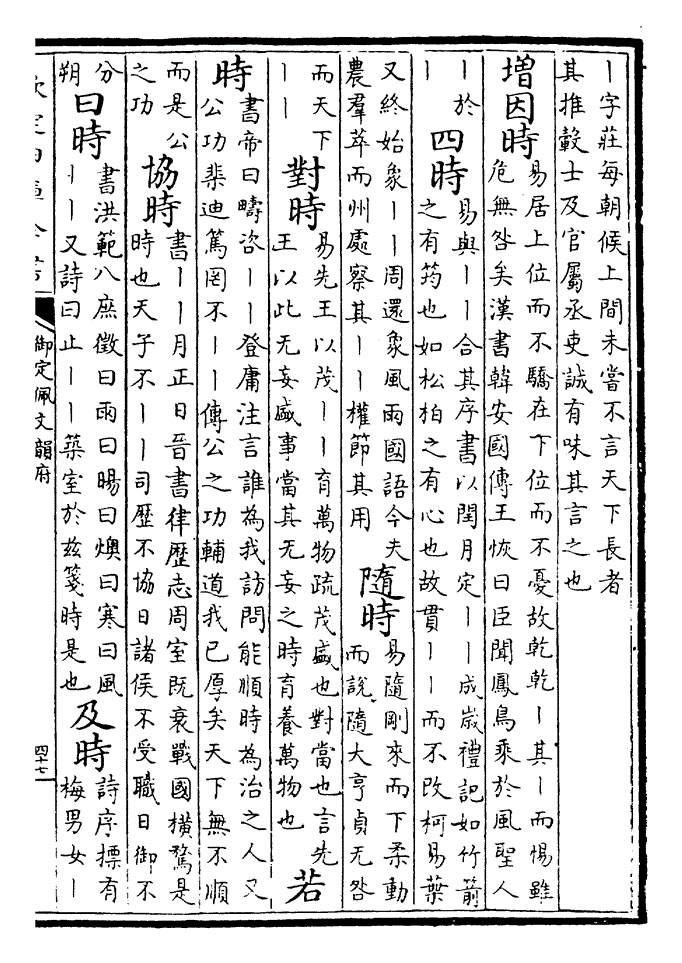 丨字莊每朝候上間未嘗不言天下長者
其推轂士及官屬丞吏誠有味其言之也
增因時
易居上位而不驕在下位而不憂故乾乾丨其丨而惕雖
危無咎矣漢書韓安國傳王恢曰臣聞鳳鳥乘於風聖人
丨於
丨
四時
易與丨丨合其序書以閏月定丨丨成歲禮記如竹箭
之有筠也如松柏之有心也故貫丨丨而不改柯易葉
又終始象丨丨周還象風雨國語今夫
農羣萃而州處察其丨丨權節其用
隨時
易隨剛來而下柔動
而說隨大亨貞无咎
而天下
丨丨
對時
易先王以茂丨丨育萬物疏茂盛也對當也言先
王以此无妄盛事當其无妄之時育養萬物也
若
時
書帝曰疇咨丨丨登庸注言誰為我訪問能順時為治之人又
公功棐迪篤罔不丨丨傳公之功輔道我已厚矣天下無不順
而是公
之功
協時
書丨丨月正日晉書律歷志周室既衰戰國橫騖是
時也天子不丨丨司歷不協日諸侯不受職日御不
分
朔
曰時
書洪範八庶徵曰雨曰暘曰燠曰寒曰風
丨丨又詩曰止丨丨築室於兹箋時是也
及時
詩序摽有
梅男女丨
欽定四庫全書
御定佩文韻府
四十七